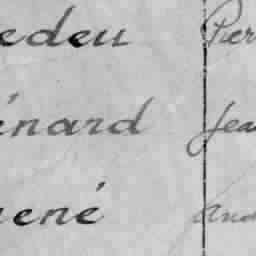 edeu Pier
énard Jea
ené And